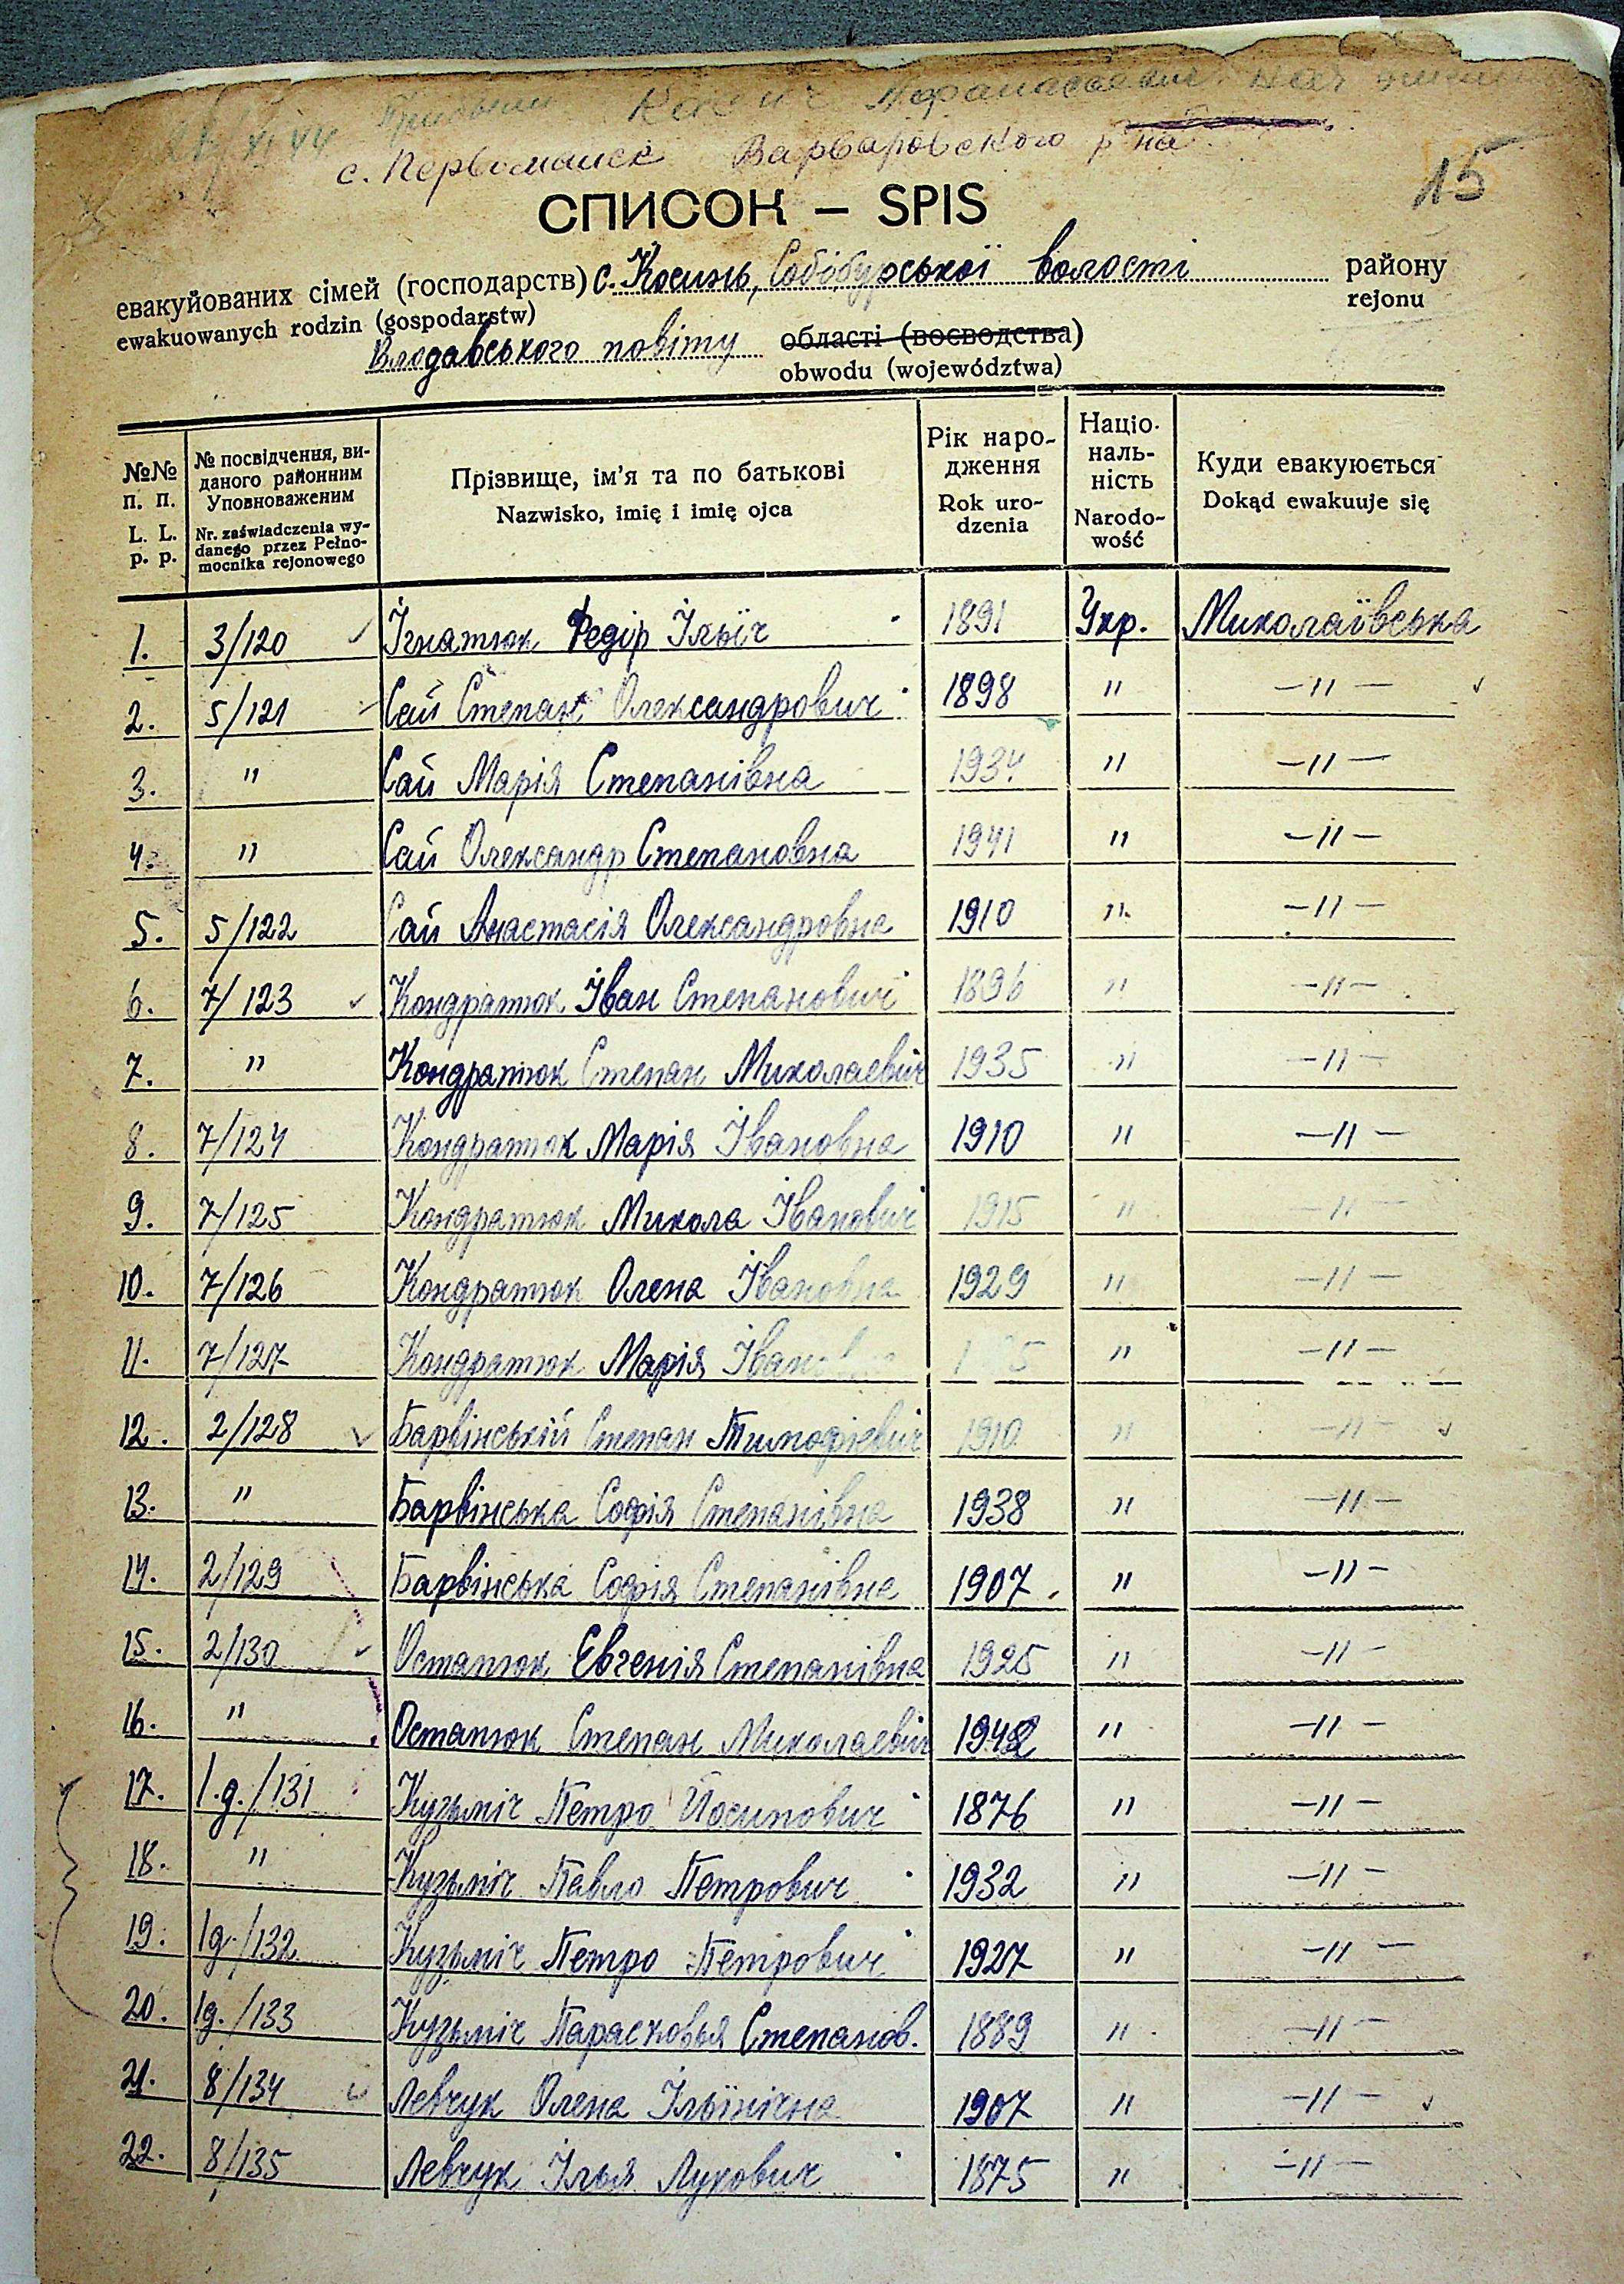 21/XI 44 Прибыли
с. Первомайск Варваровского р-на
15
СПИСОК – SPIS
евакуйованих сімей (господарств) с. Косинь, Собібурської волості району
ewakuowanych rodzin (gospodarstw) rejonu
Влодавського повіту області (воєводства)
obwodu (województwa)
№№ п. п. L. L. p. p. | № посвідчення, виданого районним Уповноваженим Nr. zaświadczenia wydanego przez Pełnomocnika rejonowego | Прізвище, ім'я та по батькові Nazwisko, imię i imię ojca | Рік народження Rok urodzenia | Національність Narodowość | Куди евакуюється Dokąd ewakuuje się
1. 3/120 Ігнатюк Федір Ільїч 1891 Укр. Миколаївська
2. 5/121 Сай Степан Олександрович 1898 " –"–
3. " Сай Марія Степанівна 1934 " –"–
4. " Сай Олександр Степановна 1941 " –"–
5. 5/122 Сай Анастасія Олександровна 1910 " –"–
6. 7/123 Кондратюк Іван Степанович 1896 " –"–
7. " Кондратюк Степан Миколаевич 1935 " –"–
8. 7/124 Кондратюк Марія Івановна 1910 " –"–
9. 7/125 Кондратюк Микола Іванович 1915 " –"–
10. 7/126 Кондратюк Олена Івановна 1929 " –"–
11. 7/127 Кондратюк Марія " –"–
12. 2/128 Барвінській Степан Тимофієвич 1910 " –"–
13. " Барвінська Софія Степанівна 1938 " –"–
14. 2/129 Барвінська Софія Степанівна 1907 " –"–
15. 2/130 Остапюк Евгенія Степанівна 1925 " –"–
16. " Остапюк Степан Миколаевич 1942 " –"–
17. 1.g./131 Кузьміч Петро Йосипович 1876 " –"–
18. " Кузьміч Павло Петрович 1932 " –"–
19. 1g./132 Кузьміч Петро Петрович 1927 " –"–
20. 1g./133 Кузьміч Парасковья Степанов. 1889 " –"–
21. 8/134 Левчук Олена Ільїнічна 1907 " –"–
22. 8/135 Левчук Ілья Лукович 1875 " –"–